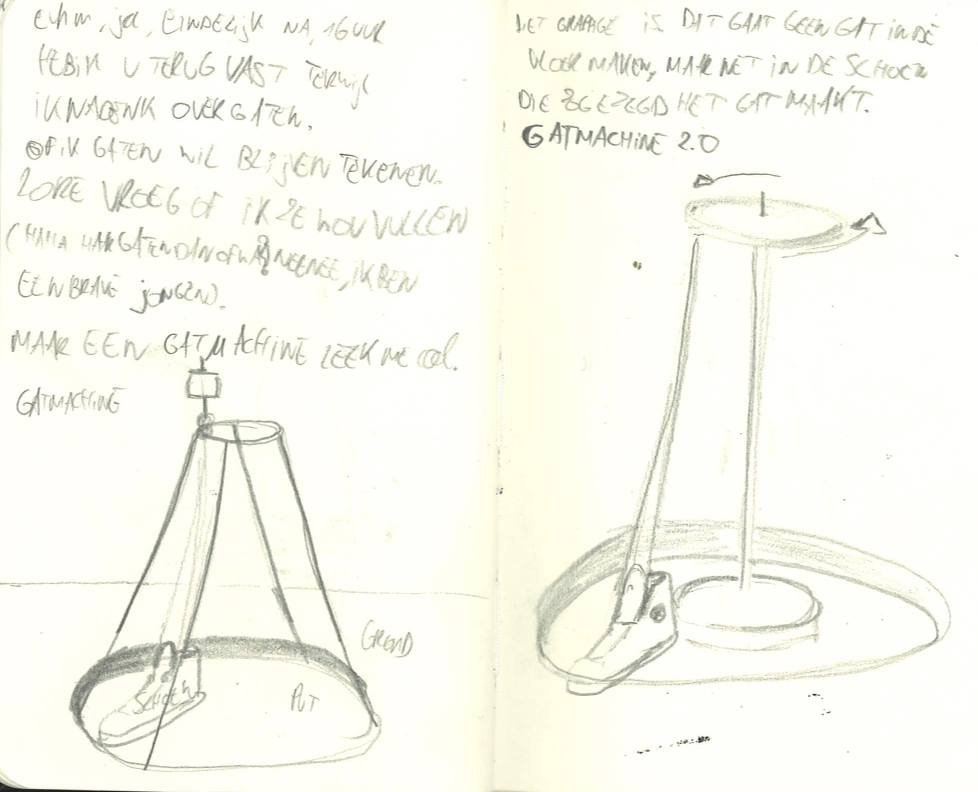 EUHM, JA, EINDELIJK NA 16 UUR
HEB IK U TERUG VAST TERWIJL
IK NADENK OVER GATEN.
OF IK GATEN WIL BLIJVEN TEKENEN.
LORE VROEG OF IK ZE WOU VULLEN
(HAHA HAAR GATEN DAN OF WA? NEENEE, IK BEN
EEN BRAVE JONGEN).
MAAR EEN GATMACHINE LEEK ME COOL.
GATMACHINE
GROND
SCHOEN
PUT
HET GRAPPIGE IS DAT GAAT GEEN GAT IN DE
VLOER MAKEN, MAAR NET IN DE SCHOEN
DIE ZOGEZEGD HET GAT MAAKT.
GATMACHINE 2.0